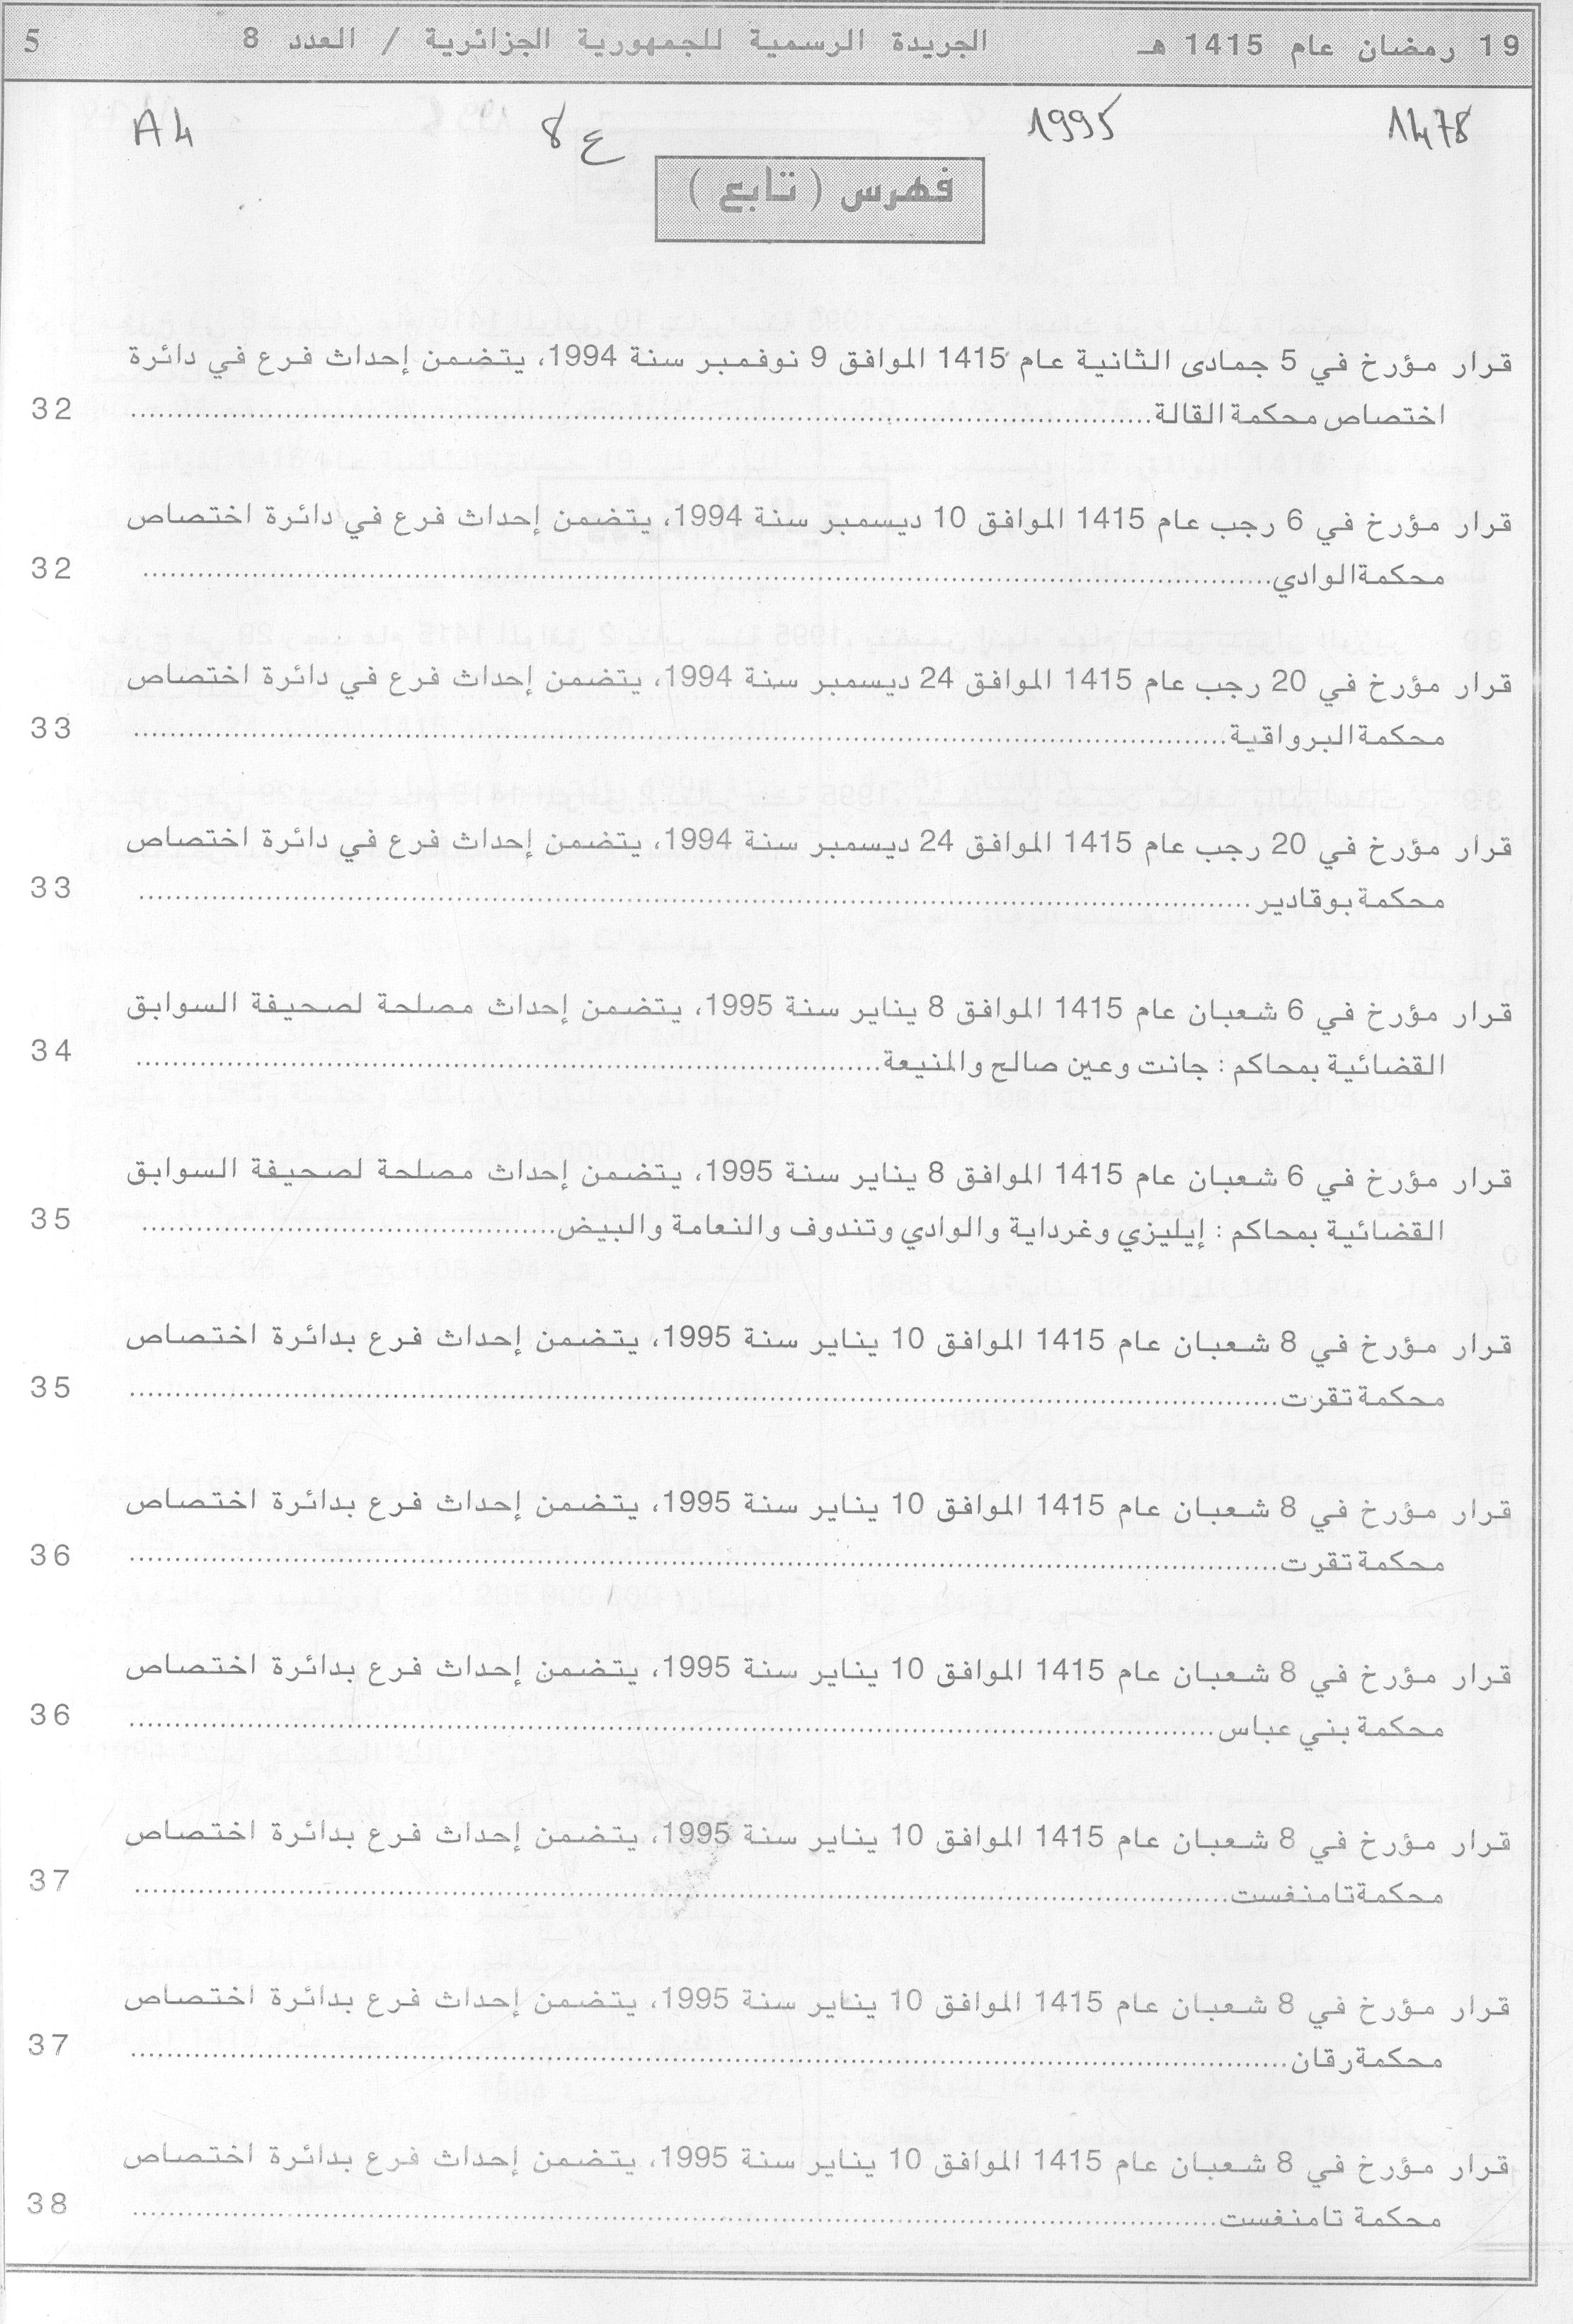 19 رمضان عام 1415 هـ الجريدة الرسمية للجمهورية الجزائرية / العدد 8 5
1478 1995 ع 8 A4
فهرس ( تابع )
قرار مؤرخ في 5 جمادى الثانية عام 1415 الموافق 9 نوفمبر سنة 1994، يتضمن إحداث فرع في دائرة
اختصاص محكمة القالة................ 32
قرار مؤرخ في 6 رجب عام 1415 الموافق 10 ديسمبر سنة 1994، يتضمن إحداث فرع في دائرة اختصاص
محكمة الوادي................ 32
قرار مؤرخ في 20 رجب عام 1415 الموافق 24 ديسمبر سنة 1994، يتضمن إحداث فرع في دائرة اختصاص
محكمة البرواقية................ 33
قرار مؤرخ في 20 رجب عام 1415 الموافق 24 ديسمبر سنة 1994، يتضمن إحداث فرع في دائرة اختصاص
محكمة بوقادير................ 33
قرار مؤرخ في 6 شعبان عام 1415 الموافق 8 يناير سنة 1995، يتضمن إحداث مصلحة لصحيفة السوابق
القضائية بمحاكم : جانت وعين صالح والمنيعة................ 34
قرار مؤرخ في 6 شعبان عام 1415 الموافق 8 يناير سنة 1995، يتضمن إحداث مصلحة لصحيفة السوابق
القضائية بمحاكم : إيليزي وغرداية والوادي وتندوف والنعامة والبيض................ 35
قرار مؤرخ في 8 شعبان عام 1415 الموافق 10 يناير سنة 1995، يتضمن إحداث فرع بدائرة اختصاص
محكمة تقرت................ 35
قرار مؤرخ في 8 شعبان عام 1415 الموافق 10 يناير سنة 1995، يتضمن إحداث فرع بدائرة اختصاص
محكمة تقرت................ 36
قرار مؤرخ في 8 شعبان عام 1415 الموافق 10 يناير سنة 1995، يتضمن إحداث فرع بدائرة اختصاص
محكمة بني عباس................ 36
قرار مؤرخ في 8 شعبان عام 1415 الموافق 10 يناير سنة 1995، يتضمن إحداث فرع بدائرة اختصاص
محكمة تامنغست................ 37
قرار مؤرخ في 8 شعبان عام 1415 الموافق 10 يناير سنة 1995، يتضمن إحداث فرع بدائرة اختصاص
محكمة رقان................ 37
قرار مؤرخ في 8 شعبان عام 1415 الموافق 10 يناير سنة 1995، يتضمن إحداث فرع بدائرة اختصاص
محكمة تامنغست................ 38